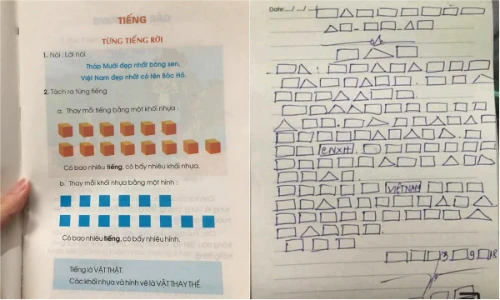 TIẾNG
TỪNG TIẾNG RỜI
1. Nói : Lời nói
Tháp Mười đẹp nhất bông sen,
Việt Nam đẹp nhất có tên Bác Hồ.
2. Tách ra từng tiếng
a. Thay mỗi tiếng bằng một khối nhựa :
Có bao nhiêu tiếng, có bấy nhiêu khối nhựa.
b. Thay mỗi khối nhựa bằng một hình :
Có bao nhiêu tiếng, có bấy nhiêu hình.
Tiếng là VẬT THẬT.
Các khối nhựa và hình vẽ là VẬT THAY THẾ.
Date: / /
CNXH
VIỆTNAM